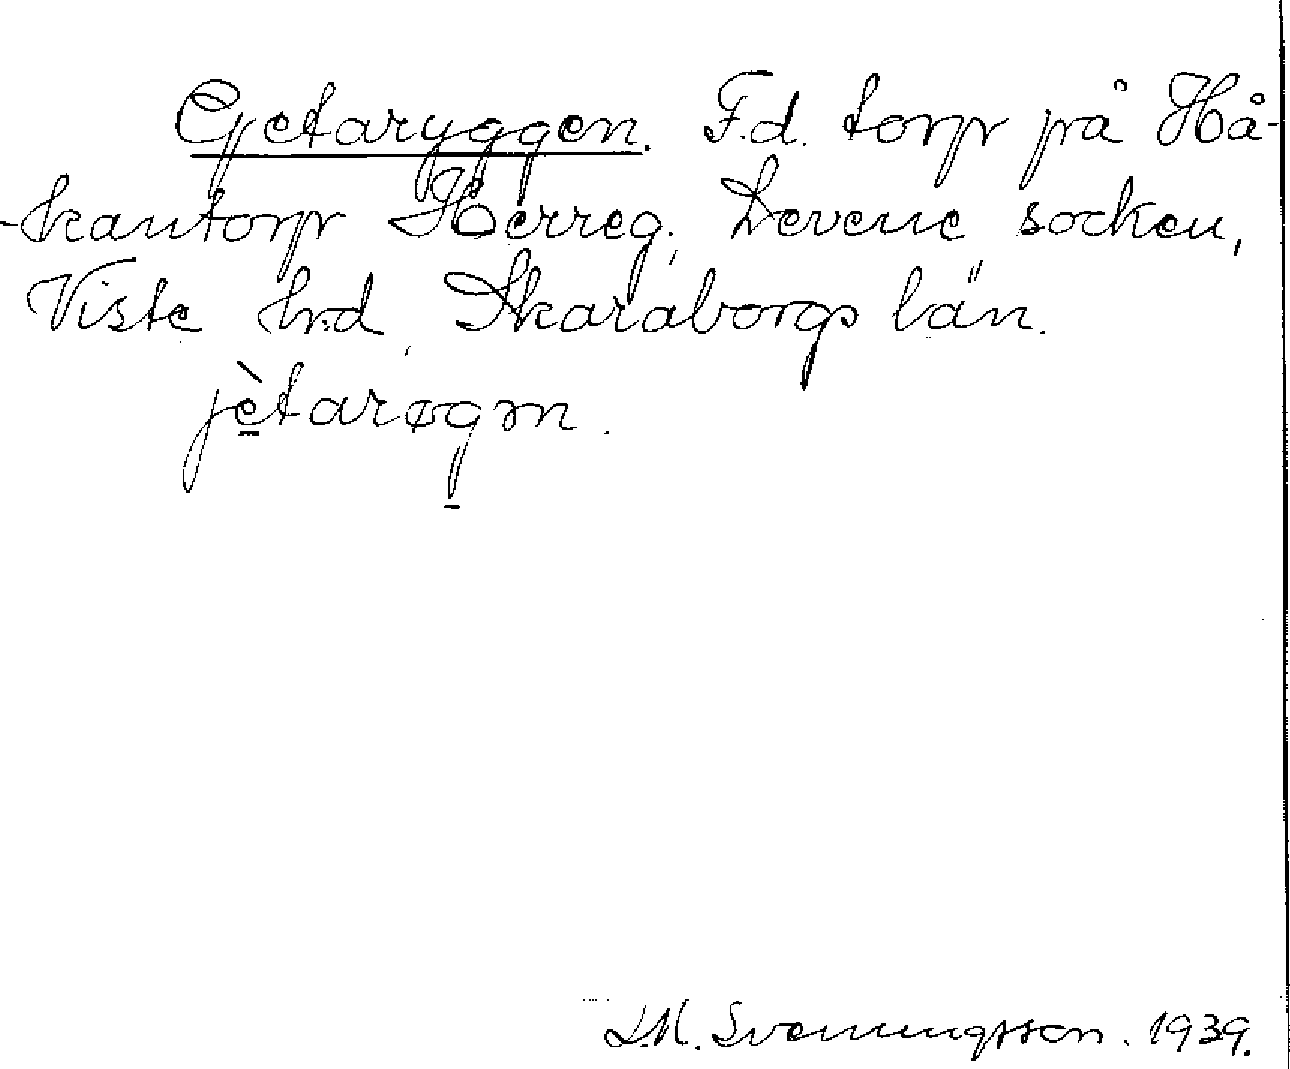 Gjetaryggen. F.d. torp på Hå-
-kantorp Herreg., Levene socken,
Viste hd, Skaraborgs län.
jètarøgən.
J.M. Svenningsson. 1939.